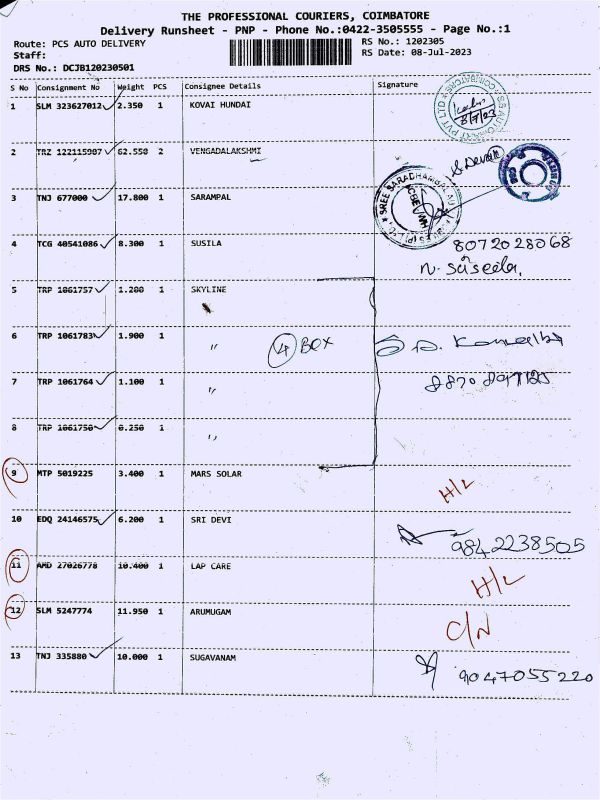 THE PROFESSIONAL COURIERS, COIMBATORE
Delivery Runsheet - PNP - Phone No.:0422-3505555 - Page No.:1
Route: PCS AUTO DELIVERY
RS No.: 1202305
Staff:
RS Date: 08-Jul-2023
DRS No.: DCJB120230501
S No Consignment No Weight PCS Consignee Details Signature
1 SLM 323627012 2.350 1 KOVAI HUNDAI
8/7/23
2 TRZ 122115907 62.550 2 VENGADALAKSHMI
3 TNJ 677000 17.800 1 SARAMPAL
4 TCG 40541086 8.300 1 SUSILA 8072028068
N. Suseela,
5 TRP 1061757 1.200 1 SKYLINE
6 TRP 1061783 1.900 1 〃 4 BOX
7 TRP 1061764 1.100 1 〃
8 TRP 1061750 0.250 1 〃
9 MTP 5019225 3.400 1 MARS SOLAR H/L
10 EDQ 24146575 6.200 1 SRI DEVI 9842238505
11 AMD 27026778 10.400 1 LAP CARE H/L
12 SLM 5247774 11.950 1 ARUMUGAM C/N
13 TNJ 335880 10.000 1 SUGAVANAM 9047055220